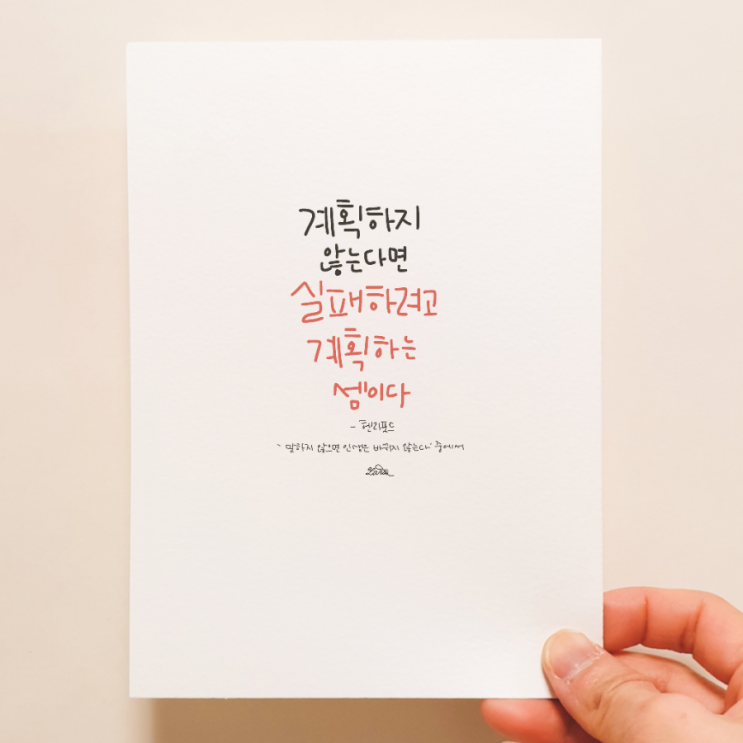 계획하지
않는다면
실패하려고
계획하는
셈이다
- 헨리포드
'말하지 않으면 인생은 바뀌지 않는다' 중에서